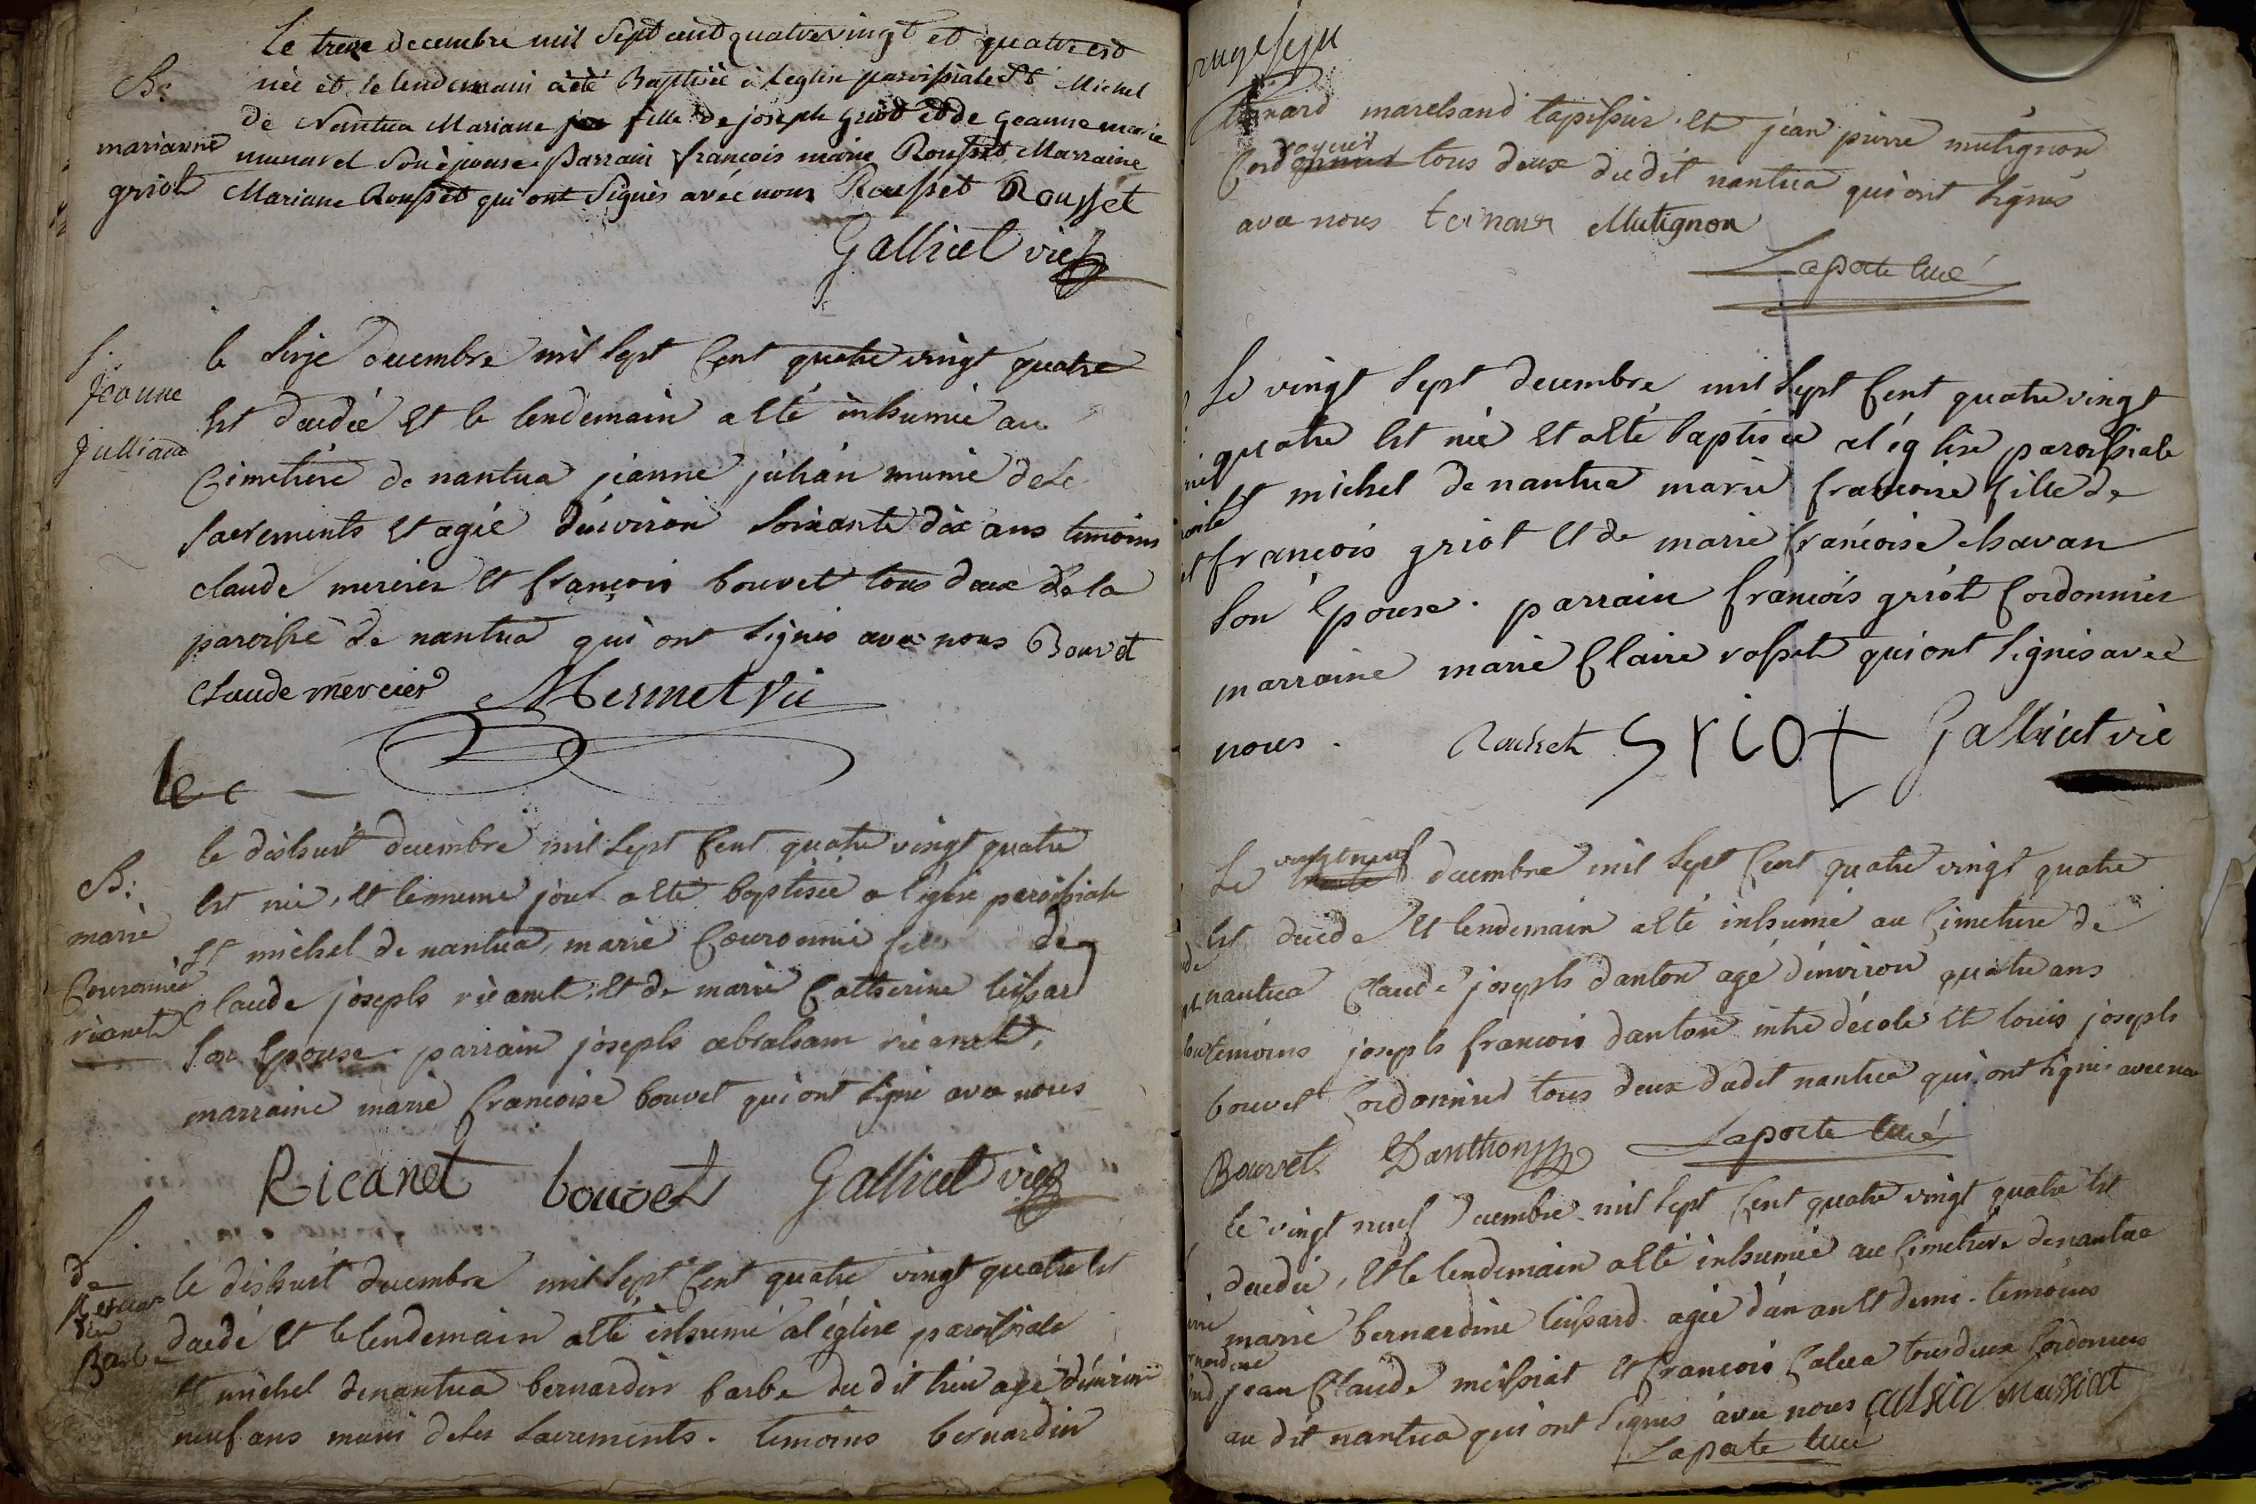 Le treze decembre mil sept cent quatrevingt et quatre est
née et le lendemain a été Baptisée a leglise paroissiale St Michel
de Nantua Mariane fille de joseph griot et de Jeanne marie
munaret son épouse. Parrain françois marie Rousset Marraine
Mariane Rousset qui ont signés avéc nous Rousset Rousset
Galliat vic
B:
marianne
griot
le seize decembre mil sept cent quatre vingt quatre
est decedée et le lendemain a eté inhumée au
cimetiere de nantua jeanne julian munie de se
sacrements et agée d'environ soixante dix ans temoins
claude mercier et françois bouvet tous deux de la
paroisse de nantua qui ont signés avec nous Bouvet
claude mercier Mermet vic
S.
Jeanne
Julliand
le c
le dixhuit decembre mil sept cent quatre vingt quatre
est née, et le meme jour a eté baptisée a l'eglise paroissiale
st michel de nantua, marie couronnée fille de
claude joseph ricanet et de marie catherine leissard
son epouse. parrain joseph abraham ricanet,
marraine marie françoise bouvet qui ont signé avec nous
Ricanet bouvet Galliat vic
B:
marie
couronnée
ricanet
le dixhuit decembre mil sept cent quatre vingt quatre est
decedé et le lendemain a eté inhumé a l'église paroissiale
st michel de nantua bernardin barbe du dit lieu agé d'environ
neuf ans muni de ses sacrements. temoins bernardin
S.
de
Bernar
din
Barbe
marchand tapissier et jean pierre mutignon
cordonnier tous deux du dit nantua qui ont signés
avec nous Mutignon
Laporte curé
Le vingt sept decembre mil sept cent quatre vingt
quatre est née et a eté baptisée a l'église paroissiale
st michel de nantua marie françoise fille de
françois griot et de marie françoise chavan
son épouse. parrain françois griot cordonnier
marraine marie claire rosset qui ont signés avec
nous. Rousset griot Galliat vic
Le vingt neuf decembre mil sept cent quatre vingt quatre
est decede et lendemain a eté inhumé au cimetiere de
nantua claude joseph danton agé d'environ quatre ans
temoins joseph françois danton mtre d'école et louis joseph
bouvet cordonnier tous deux dudit nantua qui ont signés avec nous
Bouvet Danthon Laporte curé
le vingt neuf decembre mil sept cent quatre vingt quatre est
decedée, et le lendemain a eté inhumée au cimetiere de nantua
marie bernardine leissard agée d'un an et demi. temoins
jean claude meissiat et françois tous deux cordonniers
au dit nantua qui ont signés avec nous Massiat
Laporte curé